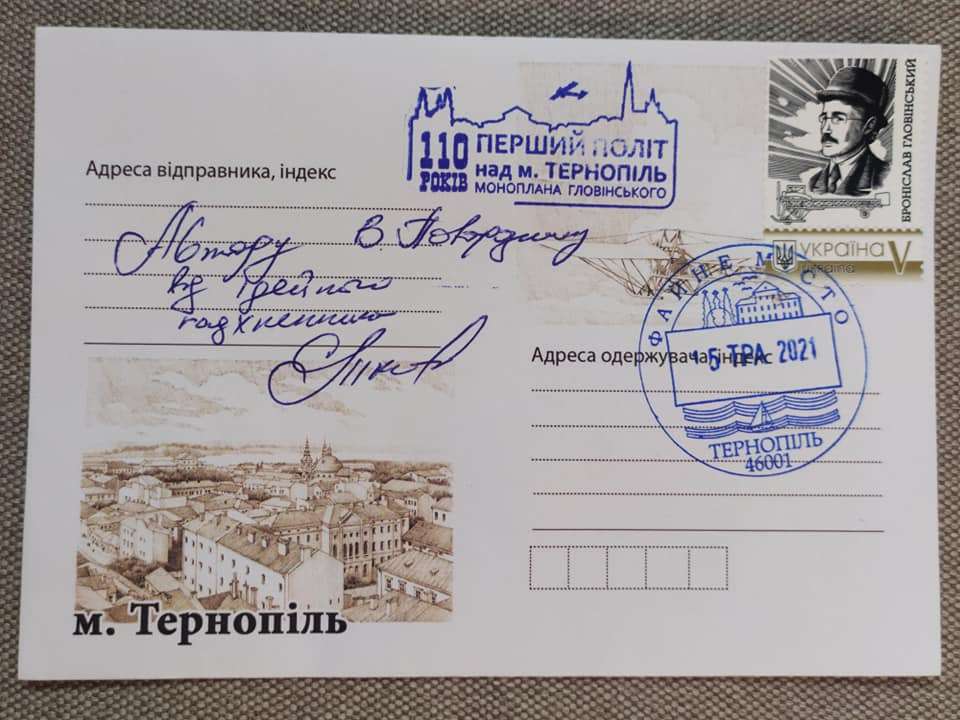 Адреса відправника, індекс
110 РОКІВ
ПЕРШИЙ ПОЛІТ
над м. ТЕРНОПІЛЬ
МОНОПЛАНА ГЛОВІНСЬКОГО
БРОНІСЛАВ ГЛОВІНСЬКИЙ
УКРАЇНА V
Ukraine
Автору В.
від ідейного
надхненника
ФАЙНЕ МІСТО
Адреса одержувача, індекс
15 ТРА 2021
ТЕРНОПІЛЬ
46001
м. Тернопіль